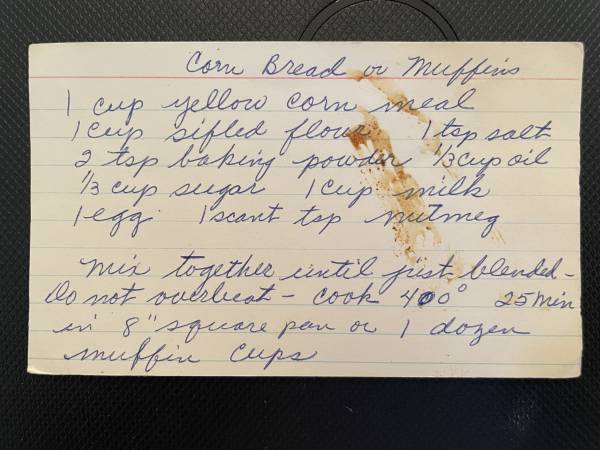 Corn Bread or Muffins
1 cup yellow corn meal
1 cup sifled flour 1 tsp salt
2 tsp baking powder 1/3 cup oil
1/3 cup sugar 1 cup milk
1 egg 1 scant tsp nutmeg
Mix together until just blended -
Do not overbeat - cook 400° 25 min
in 8" square pan or 1 dozen
muffin cups